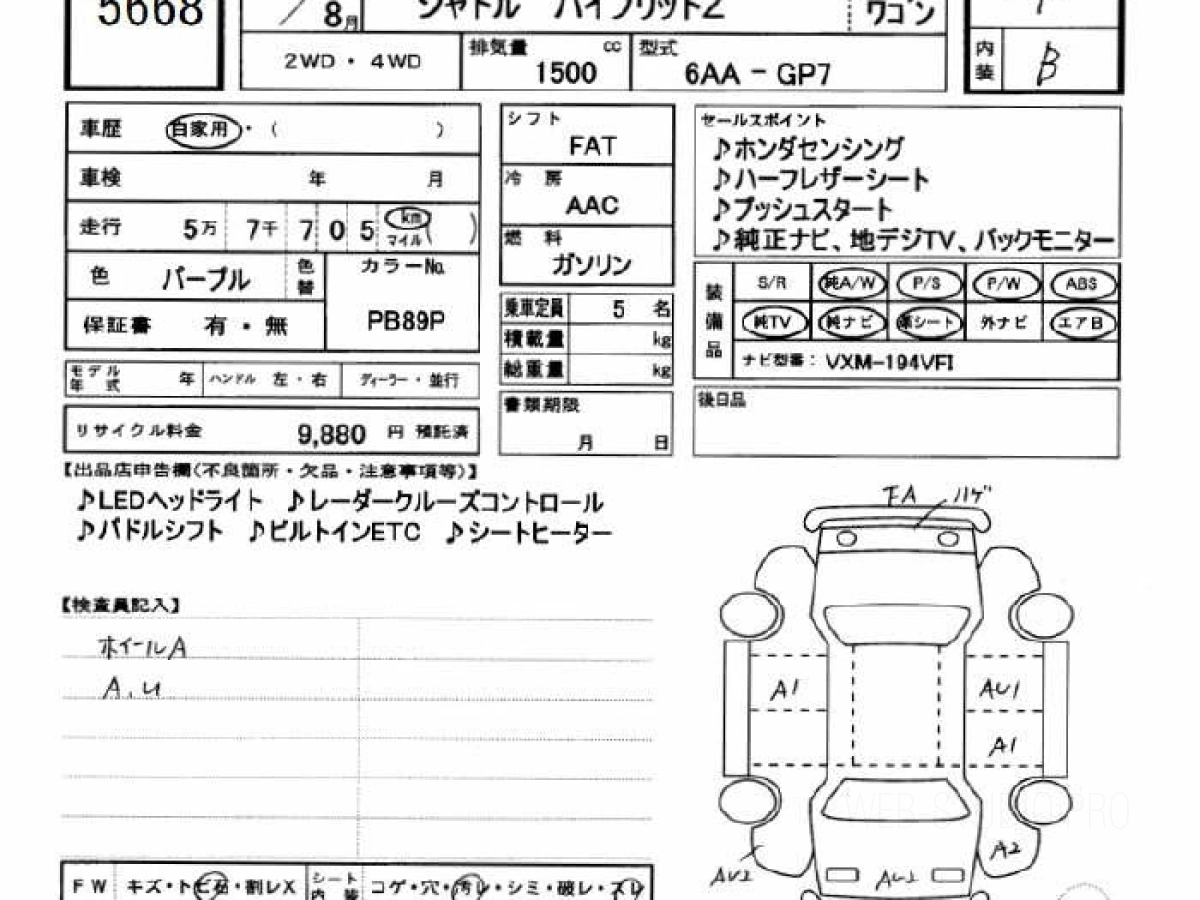 5668
8月
シャトル ハイブリッドZ
ワゴン
2WD・4WD
排気量 cc
1500
型式
6AA－GP7
内装
B
車歴 自家用・（ ）
車検 年 月
走行 5万 7千 7 0 5 km マイル( )
色 パープル 色替
カラーNo.
PB89P
保証書 有・無
モデル年式 年 ハンドル 左・右 ディーラー・並行
リサイクル料金 9,880 円 預託済
シフト
FAT
冷房
AAC
燃料
ガソリン
乗車定員 5 名
積載量 kg
総重量 kg
書類期限
月 日
セールスポイント
♪ホンダセンシング
♪ハーフレザーシート
♪プッシュスタート
♪純正ナビ、地デジTV、バックモニター
装備品
S/R 純A/W P/S P/W ABS
純TV 純ナビ 革シート 外ナビ エアB
ナビ型番：VXM-194VFI
後日品
【出品店申告欄(不良箇所・欠品・注意事項等)】
♪LEDヘッドライト ♪レーダークルーズコントロール
♪パドルシフト ♪ビルトインETC ♪シートヒーター
【検査員記入】
ホイールA
A.U
FW キズ・トビ石・割レX シート内装 コゲ・穴・汚レ・シミ・破レ・スレ
ハゲ
A1 AU1
A1
A2
AU2 AU2
WEB STUDIO PRO